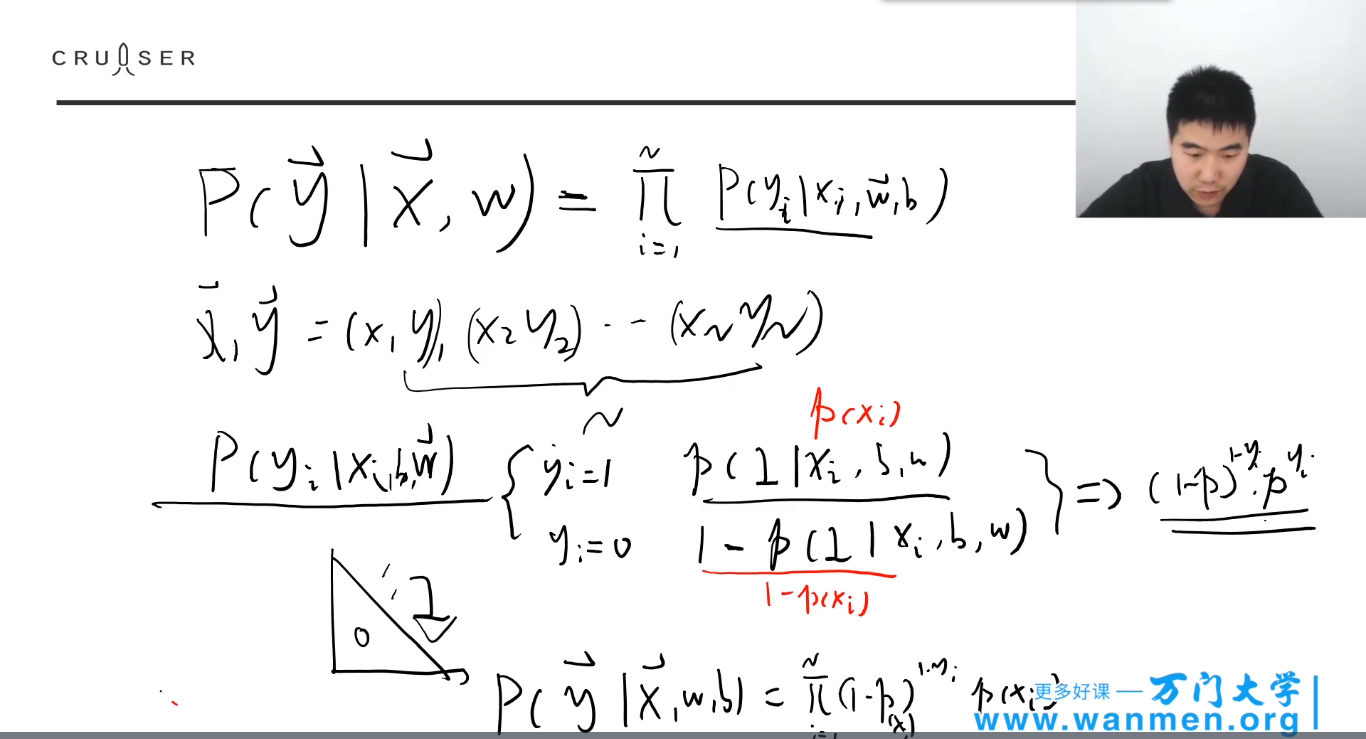 CRUISER
P(y⃗ | x⃗, w) = ∏_{i=1}^{N} P(y_i | x_i, w⃗, b)
x⃗, y⃗ = (x₁ y₁), (x₂ y₂) ·· – (x_N y_N)
N
p(x_i)
P(y_i | x_i, b, w⃗) { y_i = 1 p(1 | x_i, b, w) } => (1-p)^{1-y_i} · p^{y_i}
y_i = 0 1 - p(1 | x_i, b, w)
1 - p(x_i)
0 1
P(y⃗ | x⃗, w, b) = ∏_{i=1}^{N} (1-p(x_i))^{1-y_i} p(x_i)
更多好课 — 万门大学
www.wanmen.org